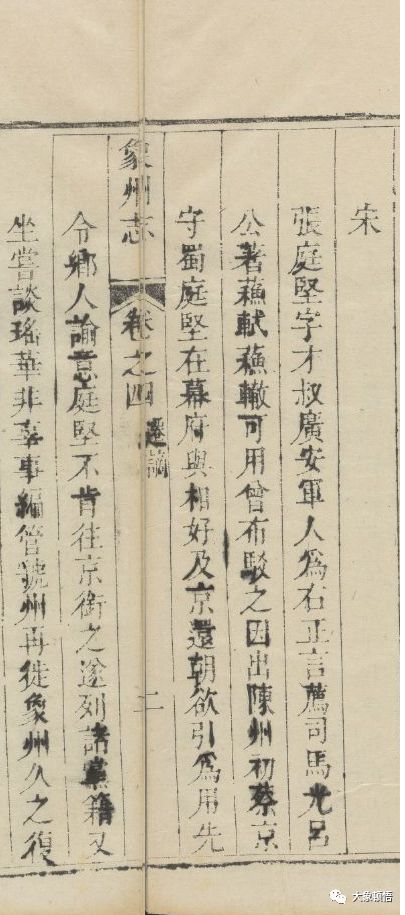 宋
張庭堅字才叔廣安軍人爲右正言薦司馬光呂
公著蘓軾蘓轍可用曾布駁之因出陳州初蔡京
守蜀庭堅在幕府與相好及京還朝欲引爲用先
象州志 卷之四 遷謫 二
令鄉人諭意庭堅不肯往京銜之遂列諸黨籍又
坐嘗談瑤華非辜事編管虢州再徙象州久之復
大象顿悟